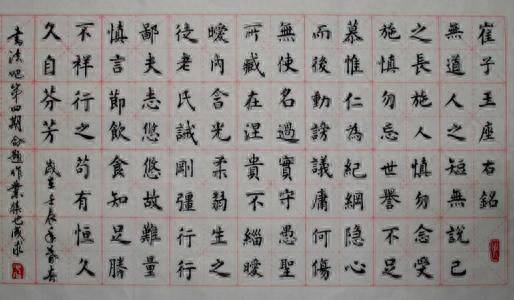 崔子玉座右銘
無道人之短無說己
之長施人慎勿念受
施慎勿忘世譽不足
慕惟仁為紀綱隱心
而後動謗議庸何傷
無使名過實守愚聖
所臧在涅貴不緇曖
曖內含光柔弱生之
徒老氏誡剛彊行行
鄙夫志悠悠故難量
慎言節飲食知足勝
不祥行之苟有恒久
久自芬芳
歲在壬辰年春
書法吧第四期命題作業